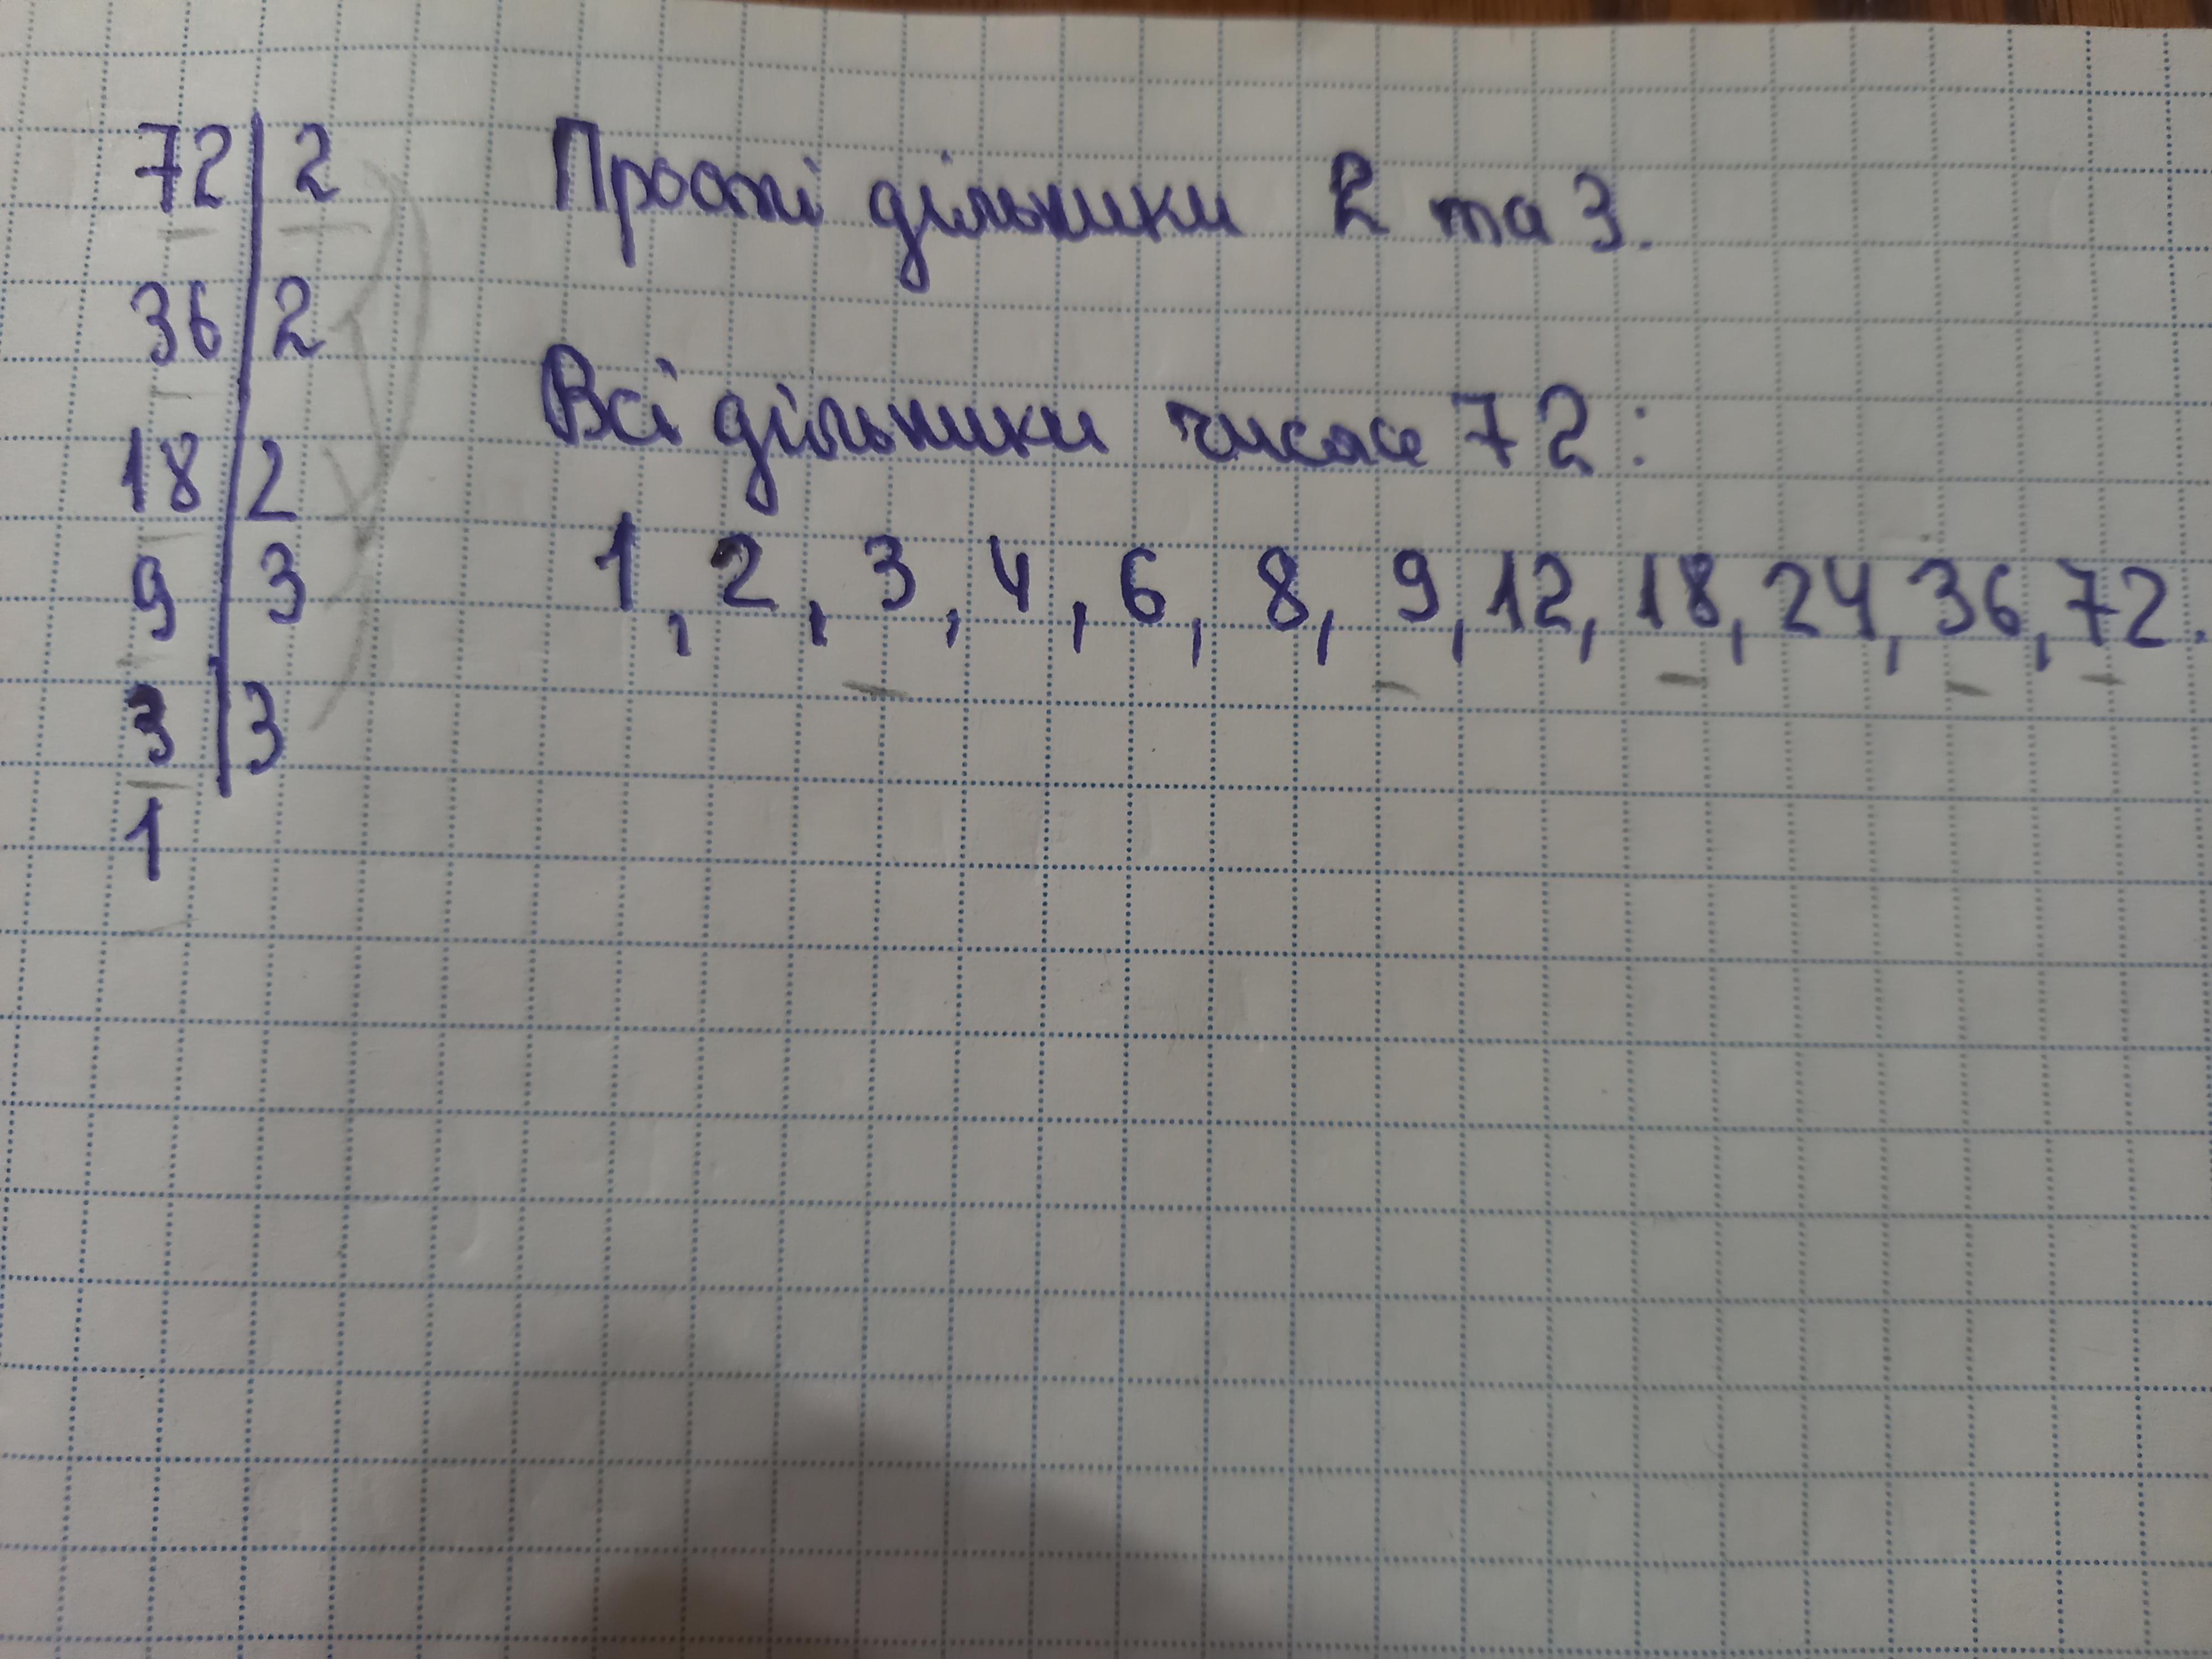 72 | 2
36 | 2
18 | 2
9 | 3
3 | 3
1
Прості дільники 2 та 3.
Всі дільники числа 72:
1, 2, 3, 4, 6, 8, 9, 12, 18, 24, 36, 72.